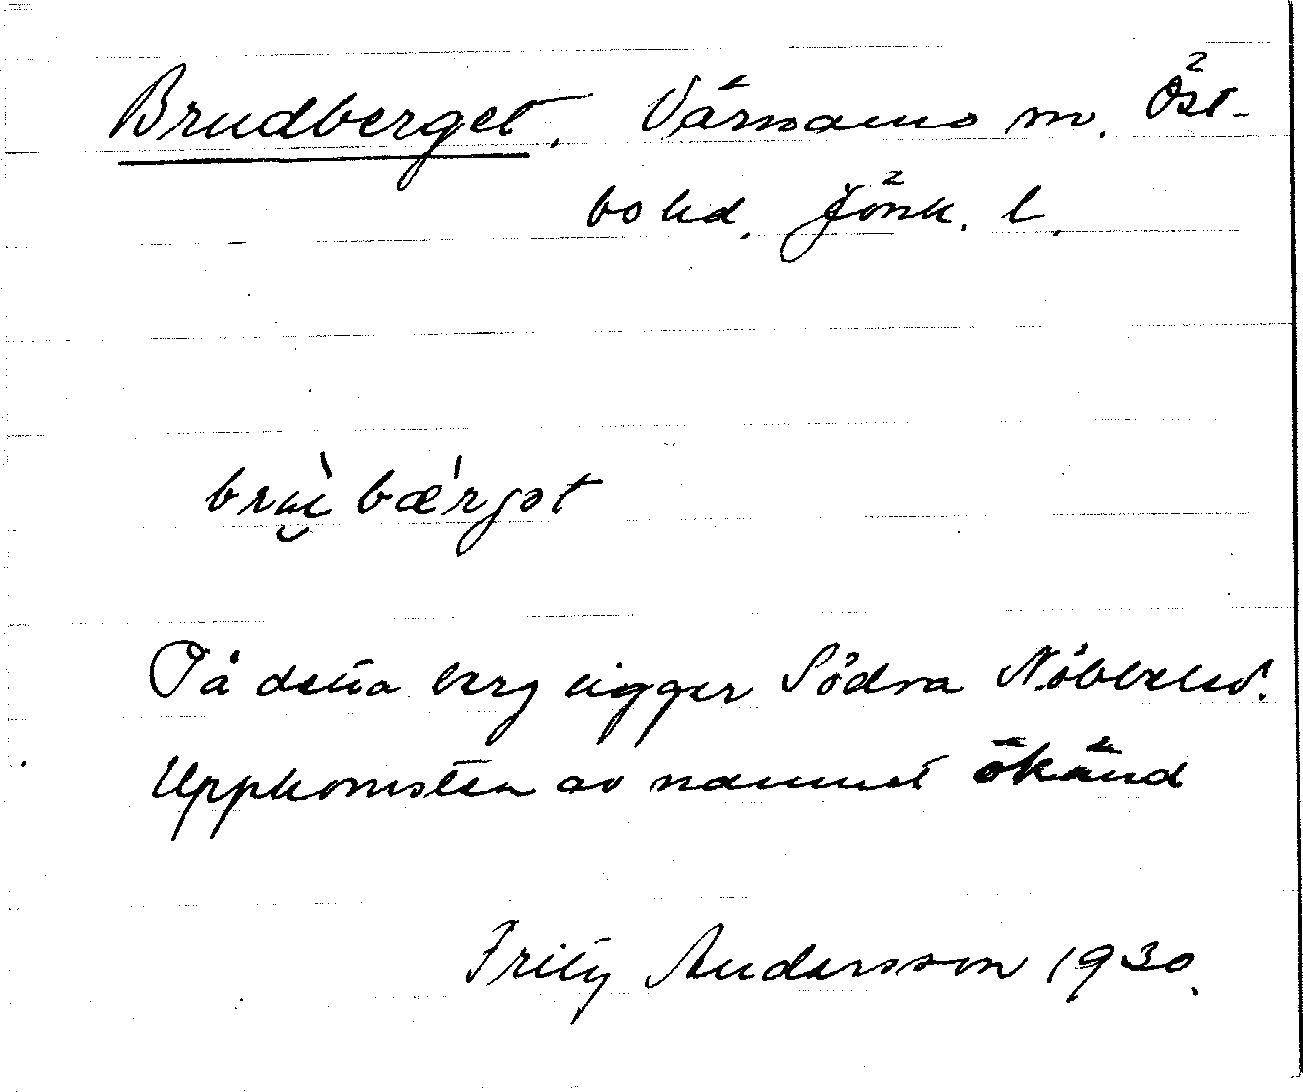 Brudberget. Värnamo sn. Öst-
bo hd. Jönk. l.
brụ̀ bærgət
På detta berg ligger Södra Nöbbeled.
Uppkomsten av namnet okänd
Frity Andersson 1930.